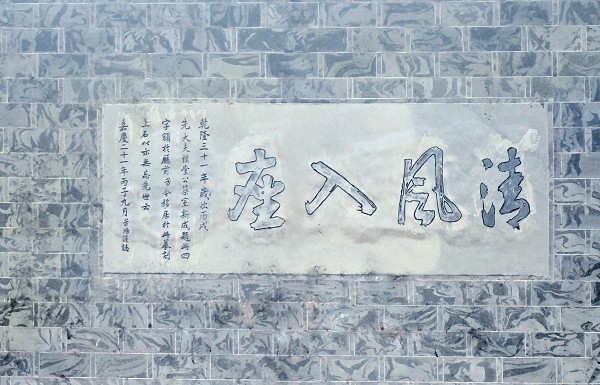 清風入座
乾隆三十一年歲次丙戌
先大夫樸堂公築室新成題此四
字額於廳前今移居於此摹刻
上石以示無忘先世云
嘉慶二十一年丙子九月